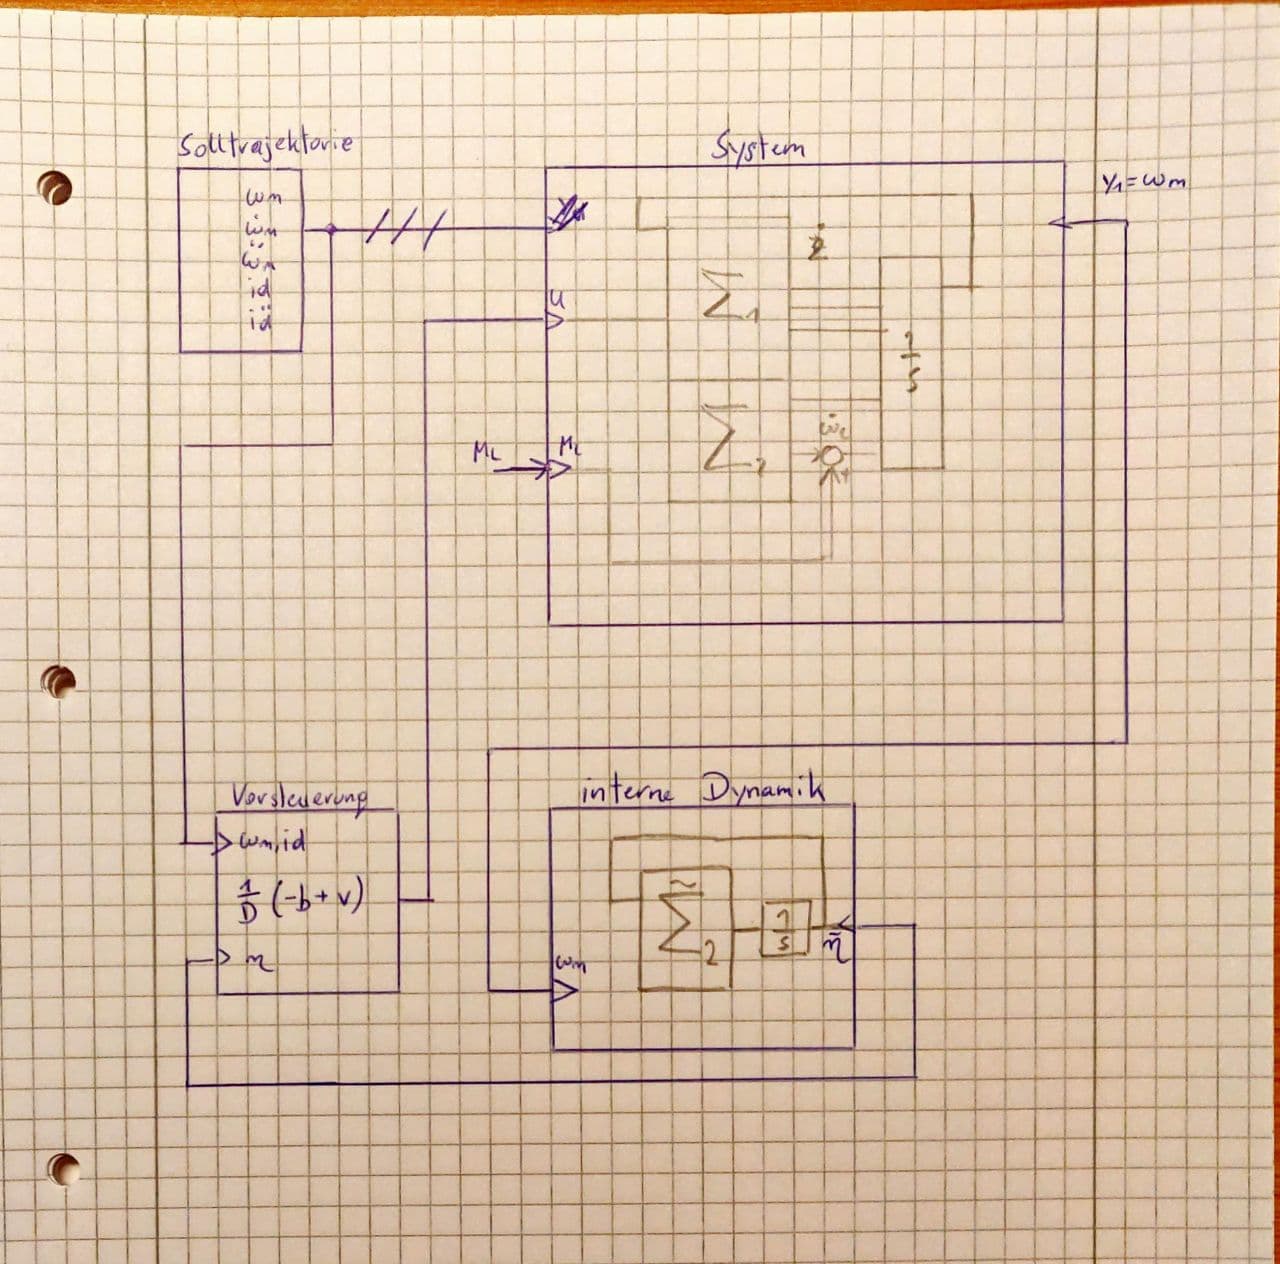 Solltrajektorie
ωm
ω̇m
ω̈m
id
i̇d
System
y₁=ωm
u
M_L
M_L
Σ₁
Σ₂
1/s
Vorsteuerung
ωm, id
1/D (-b+v)
η
interne Dynamik
Σ̃₂
1/s
η̄
ωm